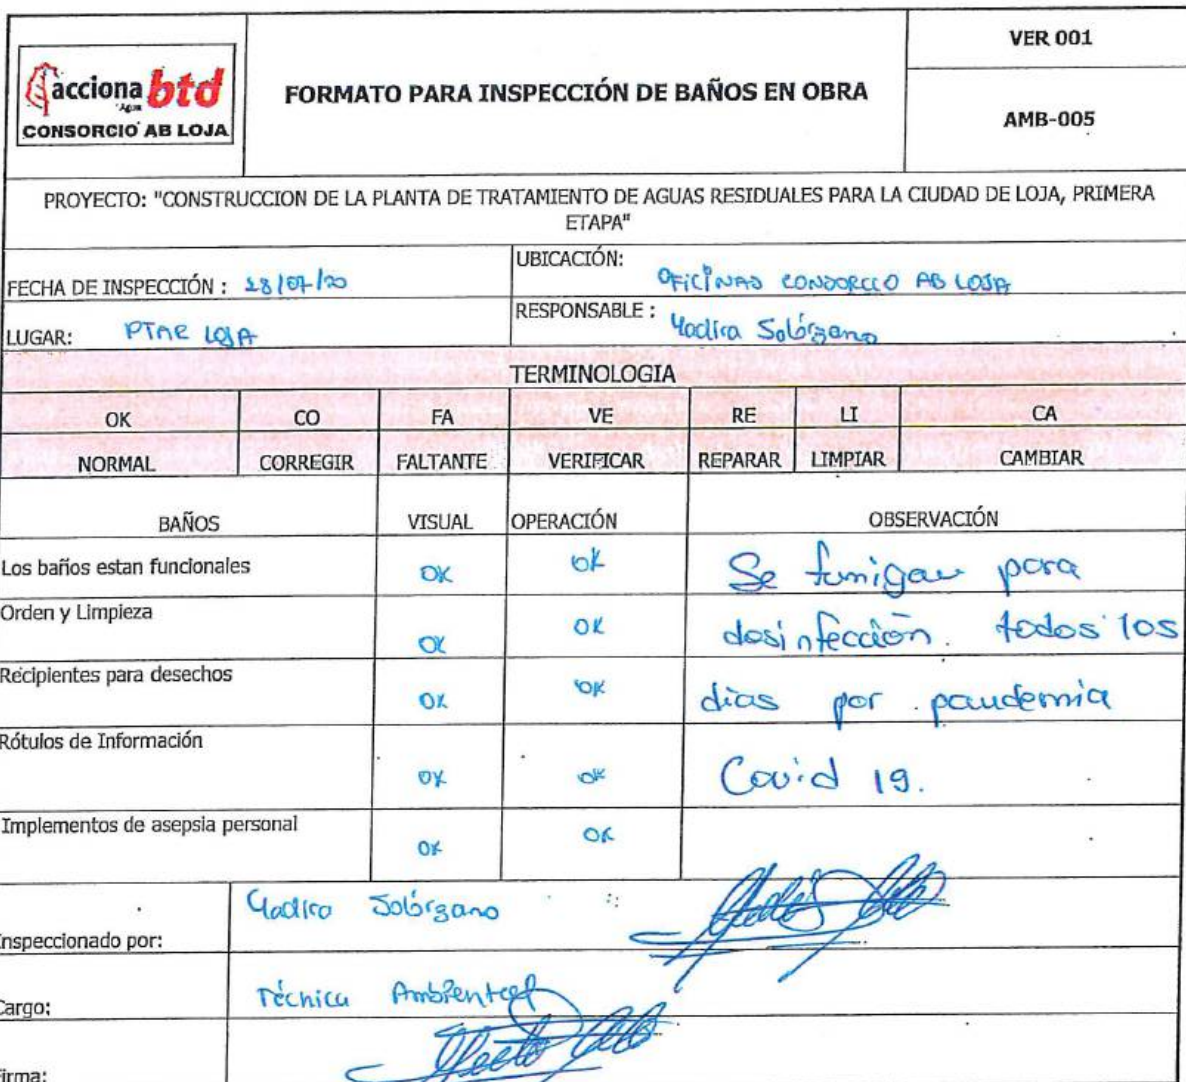 acciona btd
Agua
CONSORCIO AB LOJA
FORMATO PARA INSPECCIÓN DE BAÑOS EN OBRA
VER 001
AMB-005
PROYECTO: "CONSTRUCCION DE LA PLANTA DE TRATAMIENTO DE AGUAS RESIDUALES PARA LA CIUDAD DE LOJA, PRIMERA
ETAPA"
FECHA DE INSPECCIÓN : 28/07/20
UBICACIÓN: OFICINAS CONSORCIO AB LOJA
LUGAR: PTAR LOJA
RESPONSABLE : Yadira Solórzano
TERMINOLOGIA
OK CO FA VE RE LI CA
NORMAL CORREGIR FALTANTE VERIFICAR REPARAR LIMPIAR CAMBIAR
BAÑOS VISUAL OPERACIÓN OBSERVACIÓN
Los baños estan funcionales OK OK Se fumigan para
Orden y Limpieza OK OK desinfección. todos los
Recipientes para desechos OK OK dias por pandemia
Rótulos de Información OK OK Covid 19.
Implementos de asepsia personal OK OK
Inspeccionado por: Yadira Solórzano
Cargo: Técnica Ambiental
Firma: